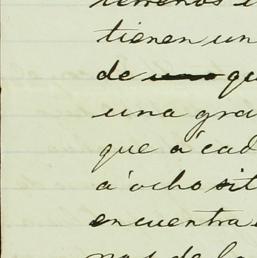 terrenos
tienen un
de uno qu
una gra
que á cad
á ocho sit
encuentra
nos de la